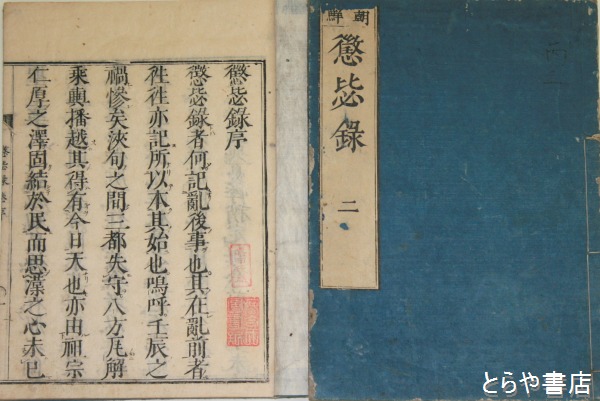 朝鮮
懲毖錄
二
懲毖錄序
懲毖錄者何記亂後事也其在亂前者
徃徃亦記所以本其始也嗚呼壬辰之
禍慘矣浹旬之間三都失守八方瓦解
乘輿播越其得有今日天也亦由祖宗
仁厚之澤固結於民而思漢之心未已
とらや書店